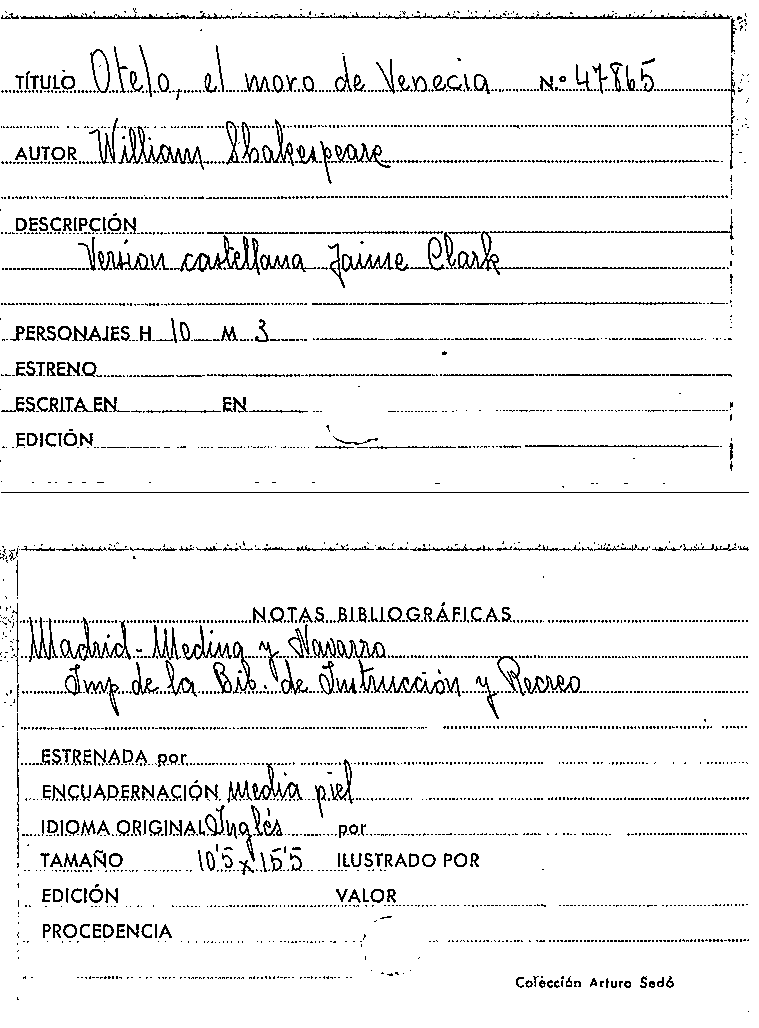 TÍTULO Otelo, el moro de Venecia N.º 47865
AUTOR William Shakespeare
DESCRIPCIÓN
Version castellana Jaime Clark
PERSONAJES H 10 M 3
ESTRENO
ESCRITA EN EN
EDICIÓN
NOTAS BIBLIOGRÁFICAS
Madrid - Medina y Navarro
Imp de la Bib. de Instrucción y Recreo
ESTRENADA por
ENCUADERNACIÓN media piel
IDIOMA ORIGINAL Inglés por
TAMAÑO 10'5 x 15'5 ILUSTRADO POR
EDICIÓN VALOR
PROCEDENCIA
Colección Arturo Sedó